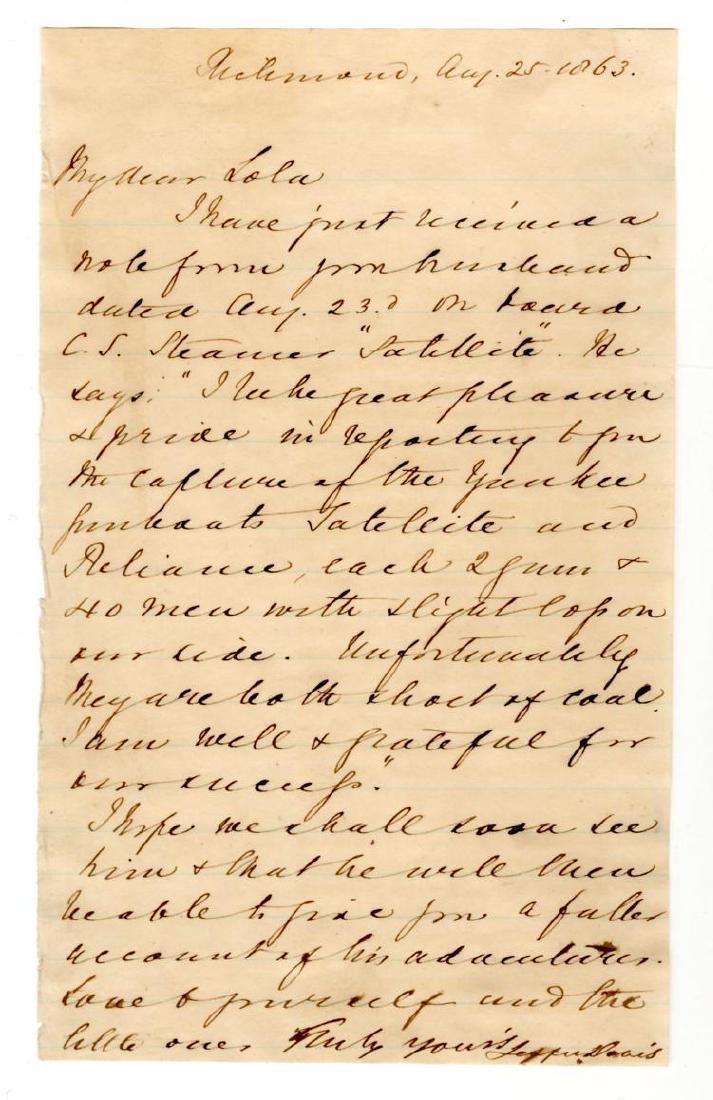 Richmond, Aug. 25. 1863.
My dear Lola
I have just received a
note from your husband
dated Aug. 23.d on board
C. S. Steamer "Satellite". He
says: "I take great pleasure
& pride in reporting to you
the capture of the Yankee
gunboats Satellite and
Reliance, each 2 guns &
40 men with slight loss on
our side. Unfortunately
they are both short of coal.
I am well & grateful for
our success."
I hope we shall soon see
him & that he will then
be able to give you a fuller
account of his adventures.
Love to yourself and the
little ones Truly yours Jeffn. Davis